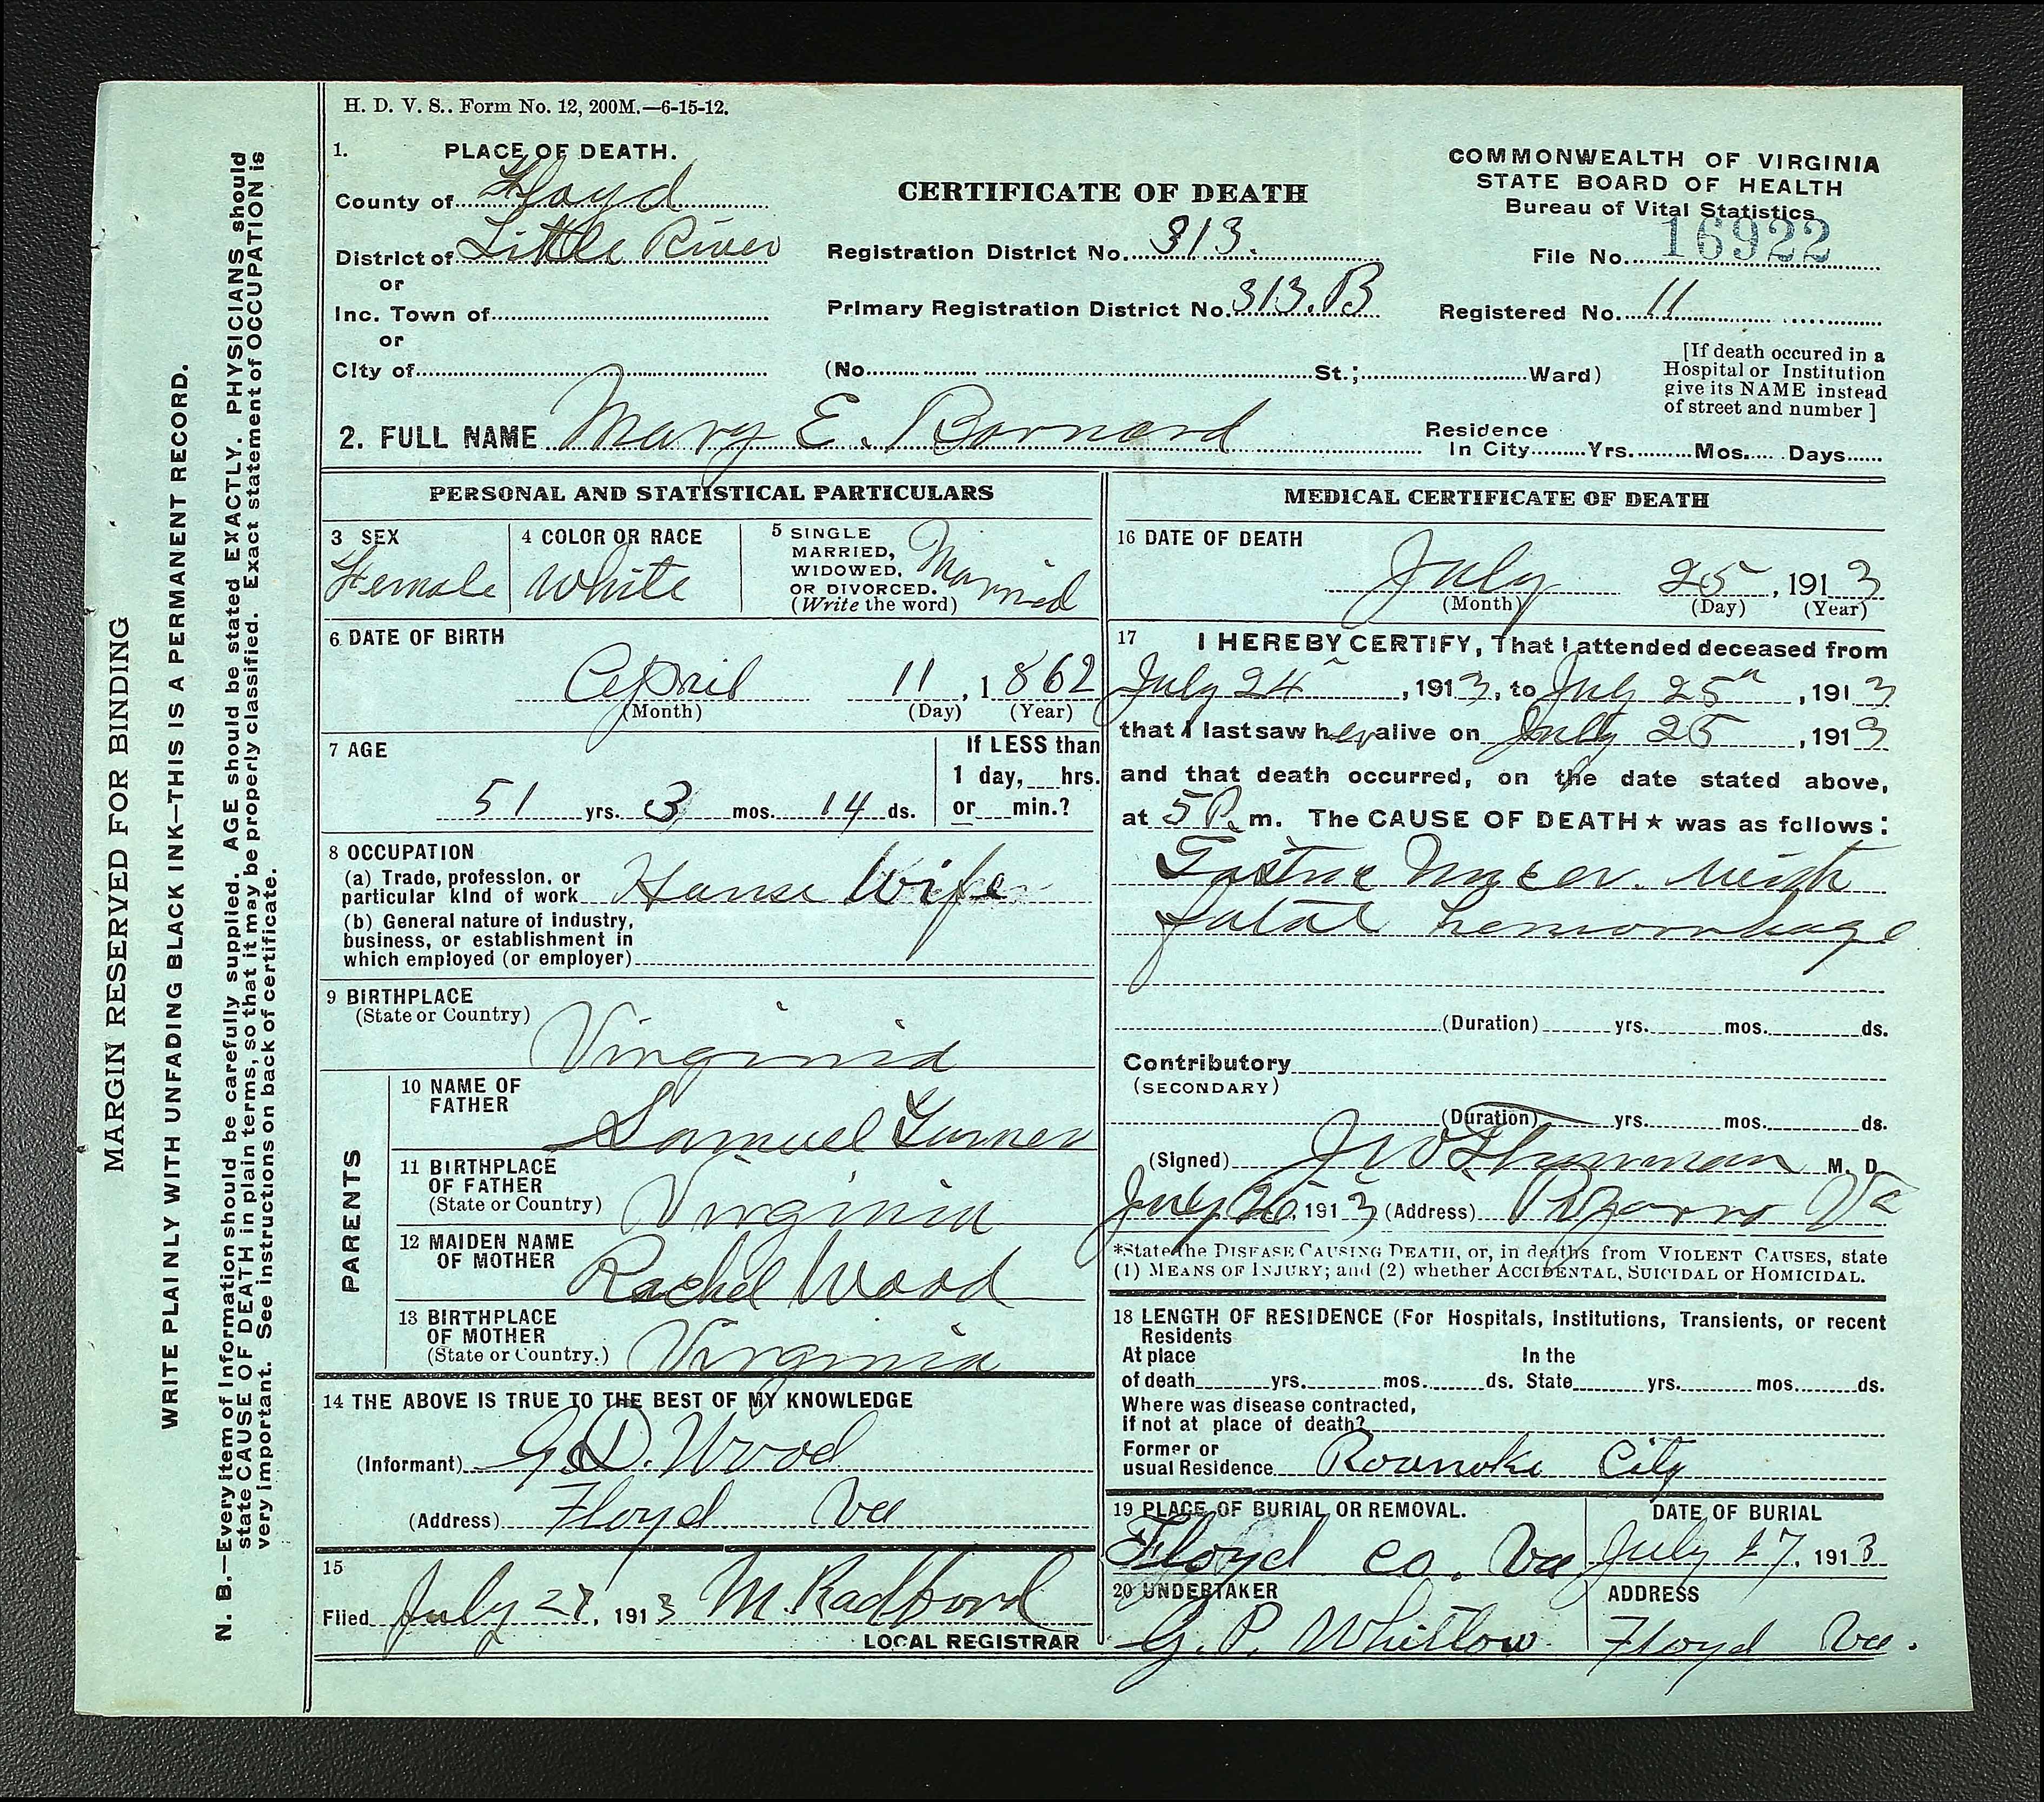 H. D. V. S.. Form No. 12, 200M.—6-15-12.
1. PLACE OF DEATH.
County of Floyd
District of Little River
or
Inc. Town of
or
City of
CERTIFICATE OF DEATH
Registration District No. 313.
Primary Registration District No. 313.B
(No. St.; Ward)
COMMONWEALTH OF VIRGINIA
STATE BOARD OF HEALTH
Bureau of Vital Statistics
File No. 16922
Registered No. 11
[If death occured in a
Hospital or Institution
give its NAME instead
of street and number ]
2. FULL NAME Mary E. Barnard
Residence
In City Yrs. Mos. Days
PERSONAL AND STATISTICAL PARTICULARS
3 SEX
Female
4 COLOR OR RACE
White
5 SINGLE
MARRIED,
WIDOWED,
OR DIVORCED.
(Write the word)
Married
6 DATE OF BIRTH
April 11, 1862
(Month) (Day) (Year)
7 AGE
51 yrs. 3 mos. 14 ds.
If LESS than
1 day, hrs.
or min.?
8 OCCUPATION
(a) Trade, profession, or
particular kind of work House Wife
(b) General nature of industry,
business, or establishment in
which employed (or employer)
9 BIRTHPLACE
(State or Country)
Virginia
PARENTS
10 NAME OF
FATHER
Samuel Turner
11 BIRTHPLACE
OF FATHER
(State or Country) Virginia
12 MAIDEN NAME
OF MOTHER
Rachel Wood
13 BIRTHPLACE
OF MOTHER
(State or Country.) Virginia
14 THE ABOVE IS TRUE TO THE BEST OF MY KNOWLEDGE
(Informant) G.D. Wood
(Address) Floyd Va
15
Filed July 27, 1913 M. Radford
LOCAL REGISTRAR
MEDICAL CERTIFICATE OF DEATH
16 DATE OF DEATH
July 25, 1913
(Month) (Day) (Year)
17 I HEREBY CERTIFY, That I attended deceased from
July 24, 1913, to July 25, 1913
that I last saw her alive on July 25, 1913
and that death occurred, on the date stated above,
at 5 P. m. The CAUSE OF DEATH★ was as follows:
Gastric with
fatal hemorrhage
(Duration) yrs. mos. ds.
Contributory
(SECONDARY)
(Duration) yrs. mos. ds.
(Signed) J W Thurman M. D.
July 26, 1913 (Address) Pizarro Va
*State the DISEASE CAUSING DEATH, or, in deaths from VIOLENT CAUSES, state
(1) MEANS OF INJURY; and (2) whether ACCIDENTAL, SUICIDAL or HOMICIDAL.
18 LENGTH OF RESIDENCE (For Hospitals, Institutions, Transients, or recent
Residents
At place In the
of death yrs. mos. ds. State yrs. mos. ds.
Where was disease contracted,
if not at place of death?
Former or
usual Residence Roanoke City
19 PLACE OF BURIAL OR REMOVAL.
Floyd co. Va
DATE OF BURIAL
July 27, 1913
20 UNDERTAKER
G. P. Whitlow
ADDRESS
Floyd Va.
MARGIN RESERVED FOR BINDING
WRITE PLAINLY WITH UNFADING BLACK INK—THIS IS A PERMANENT RECORD.
N. B.—Every item of information should be carefully supplied. AGE should be stated EXACTLY. PHYSICIANS should
state CAUSE OF DEATH in plain terms, so that it may be properly classified. Exact statement of OCCUPATION is
very important. See instructions on back of certificate.